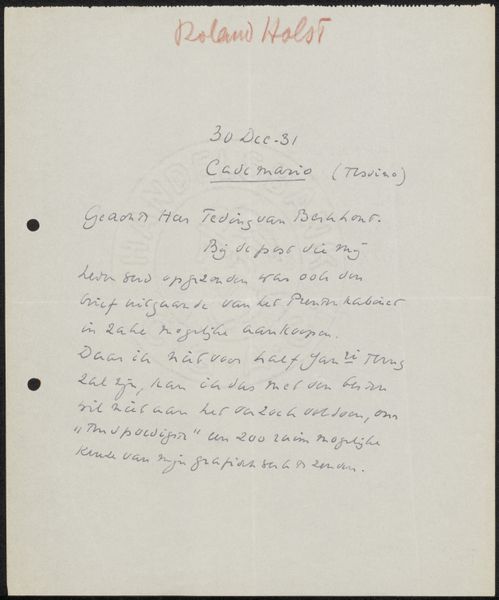 Roland Holst
30 Dec - 31
Cademario (Tessino)
Geachte Heer Teding van Berkhout.
Bij de post die mij
heden werd opgezonden was ook den
brief uitgaande van het Prentenkabinet
in zake mogelijke aankoopen.
Daar ik niet voor half Januari terug
zal zijn, kan ik dus met den besten
wil niet aan het verzoek voldoen, om
"ten spoedigste" een zoo ruim mogelijke
keuze van mijn grafisch werk te zenden.